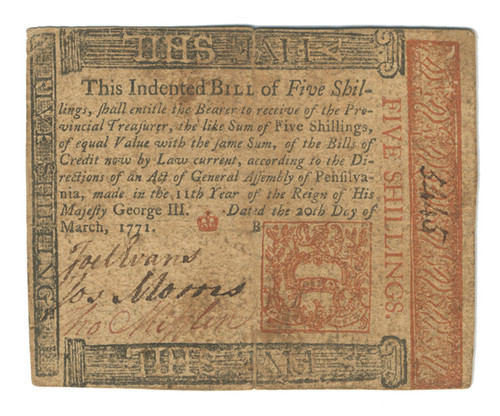 FIVE SHIL
This Indented BILL of Five Shil-
lings, shall entitle the Bearer to receive of the Pro-
vincial Treasurer, the like Sum of Five Shillings,
of equal Value with the same Sum, of the Bills of
Credit now by Law current, according to the Di-
rections of an Act of General Assembly of Pensilva-
nia, made in the 11th Year of the Reign of His
Majesty George III. Dated the 20th Day of
March, 1771. B
Joel Evans
Jos Morris
FIVE SHIL
FIVE SHILLINGS
FIVE SHILLINGS.